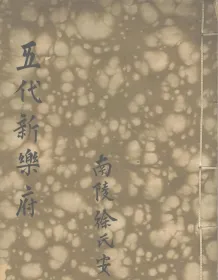 五代新樂府
南陵徐氏安